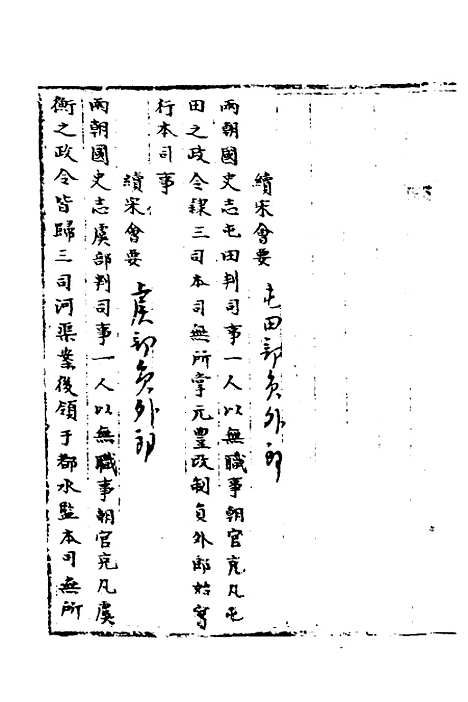 續宋會要 屯田部員外郎
兩朝國史志屯田判司事一人以無職事朝官充凡屯
田之政令隸三司本司無所掌元豐改制員外郎始實
行本司事
續宋會要 虞部員外郎
兩朝國史志虞部判司事一人以無職事朝官充凡虞
衡之政令皆歸三司河渠案後領于都水監本司無所